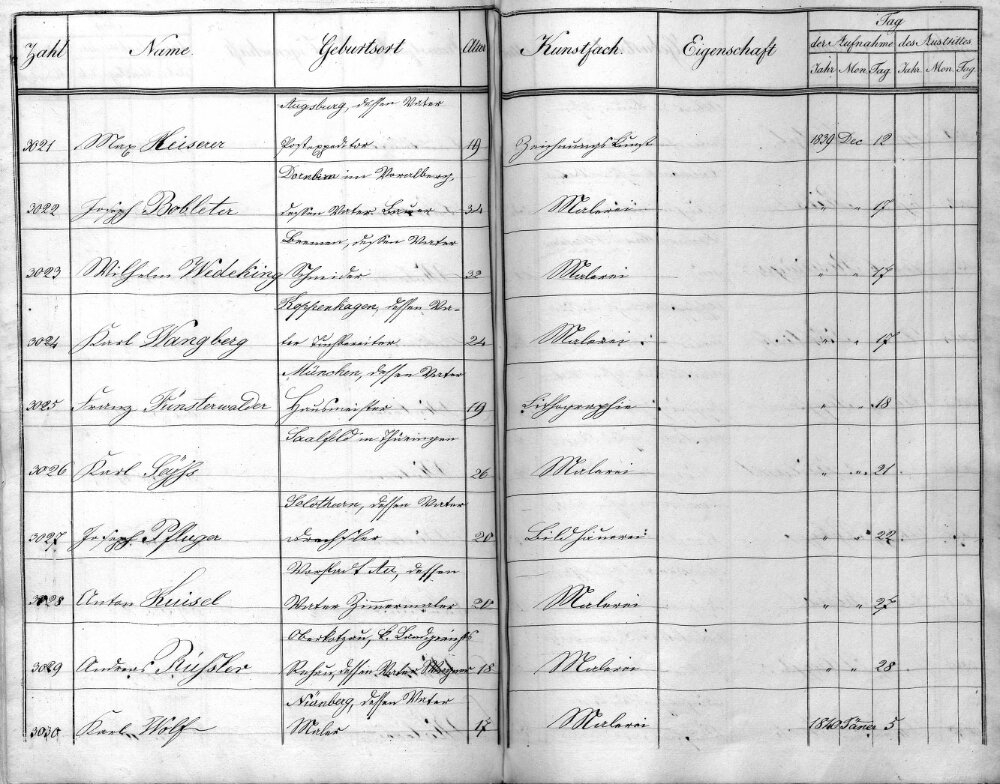 Zahl Name. Geburtsort Alter Kunstfach. Eigenschaft Tag
der Aufnahme des Austrittes
Jahr Mon. Tag Jahr. Mon. Tag.
Augsburg, dessen Vater
3021 Max Heiserer Postexpeditor 19 Zeichnungskunst 1839 Dec 12
Dornbirn im Voralberg,
3022 Joseph Bobleter dessen Vater Bauer 34 Malerei " " 17
Bremen, dessen Vater
3023 Wilhelm Wedeking Schneider 32 Malerei " " 17
Koppenhagen, dessen Va-
3024 Karl Wangberg ter 24 Malerei " " 17
München, dessen Vater
3025 Franz Finsterwalder Hausmeister 19 Lithographie " " 18
Saalfeld in Thüringen
3026 Karl 26 Malerei " " 21
Solothurn, dessen Vater
3027 Joseph Pfluger Drechsler 20 Bildhauerei " " 22
Vorstadt Au, dessen
3028 Anton Vater Zimmermaler 21 Malerei " " 27
Oberkotzau, k. Landgerichts
3029 Andreas Rehau, dessen Vater 18 Malerei " " 28
Nürnberg, dessen Vater
3030 Karl Wolf Maler 17 Malerei 1840 Jäner 5